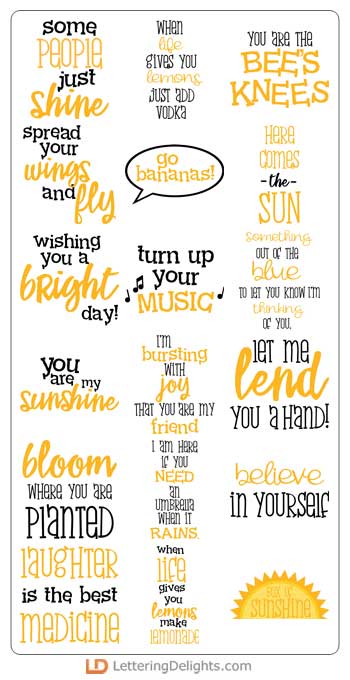 some
PEOPLE
just
shine
spread
your
wings
and fly
wishing
you a
bright
day!
you
are my
sunshine
bloom
WHERE YOU ARE
PLANTED
LAUGHTER
is the best
MEDICINE
WHEN
life
GIVES YOU
lemons
JUST ADD
VODKA
go
bananas!
turn up
your
MUSIC
I'M
bursting
WITH
joy
THAT YOU ARE MY
friend
I AM HERE
IF YOU
NEED
AN
UMBRELLA
WHEN IT
RAINS.
when
LIFE
gives
you
lemons
make
LEMONADE
YOU ARE THE
BEE'S
KNEES
HERE
COMES
-the-
SUN
something
OUT OF THE
blue
TO LET YOU KNOW I'M
thinking
OF YOU.
LET ME
lend
YOU A HAND!
believe
IN YOURSELF
BOX OF
sunshine
LD LetteringDelights.com